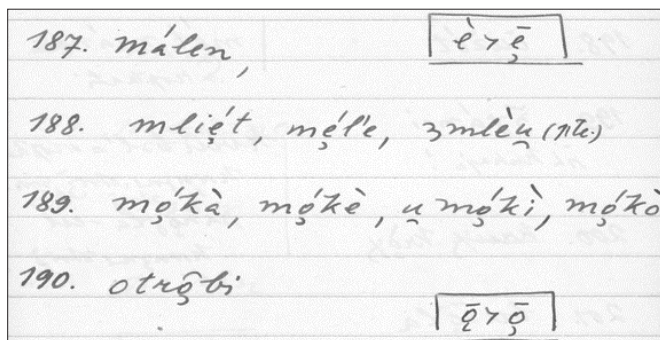 187. málen, è > ẹ̄
188. mliẹ́t, mẹ́l'e, zmlèu̯ (ptc.)
189. mọ́kà, mọ́kè, u̯ mọ́kì, mọ́kò
190. otrọ̑bi
ǭ > ọ̄